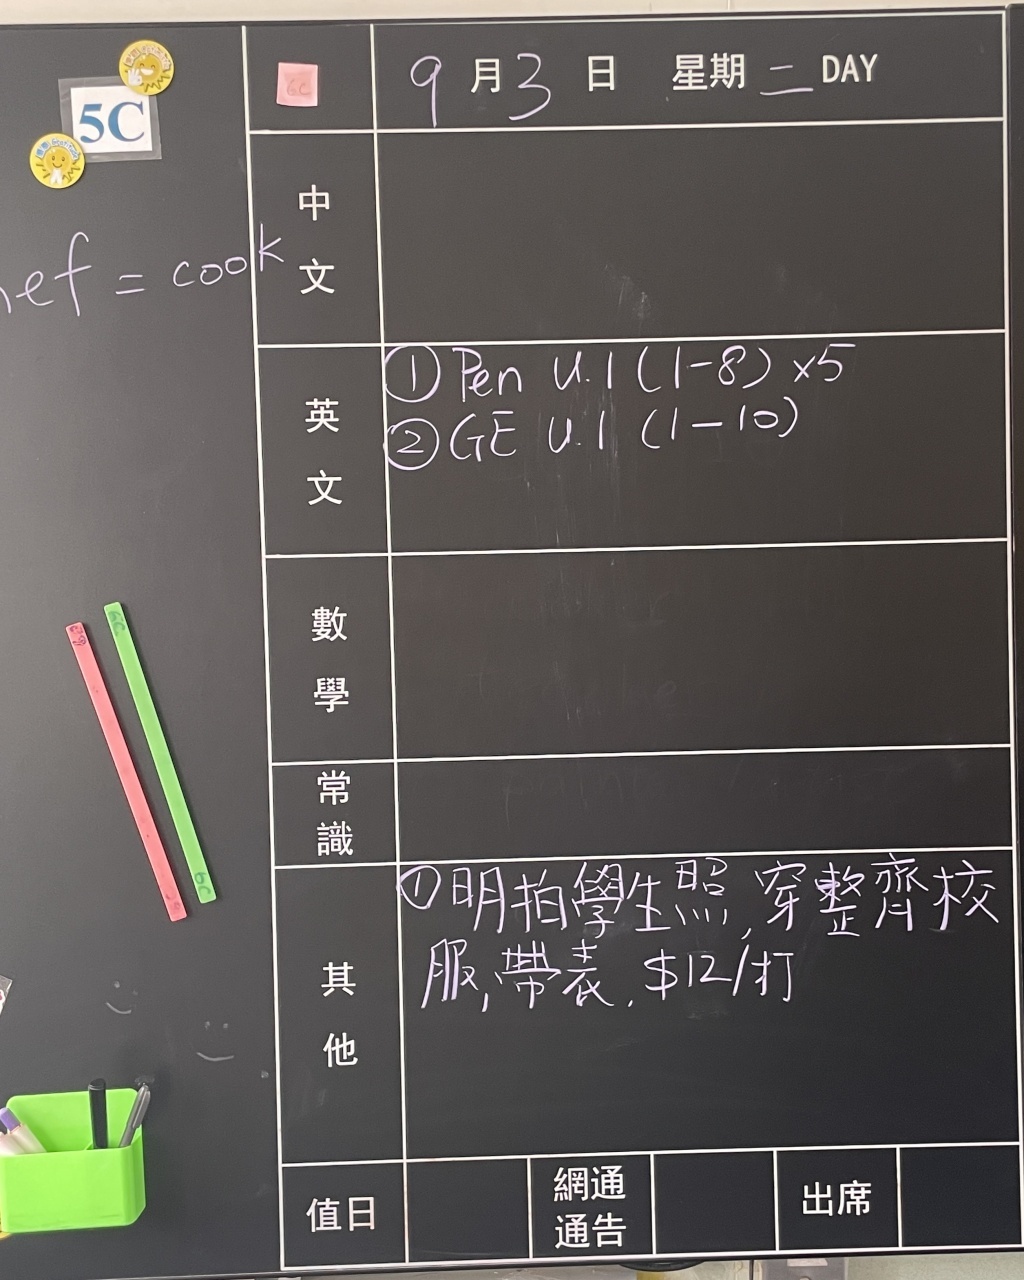 5C
6C
9月3日 星期二 DAY
ef = cook
中文
英文
① Pen U.1 (1-8) x5
② GE U.1 (1-10)
數學
常識
其他
① 明拍學生照,穿整齊校
服,帶表,$12/打
值日
網通
通告
出席